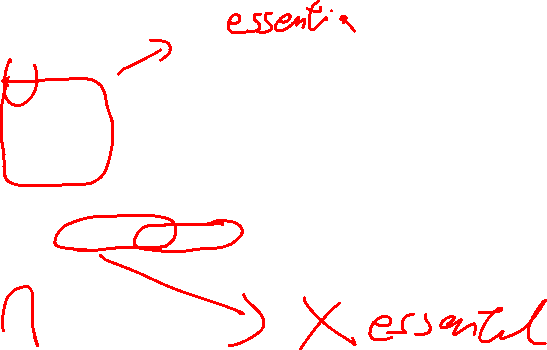 essentia
X essential